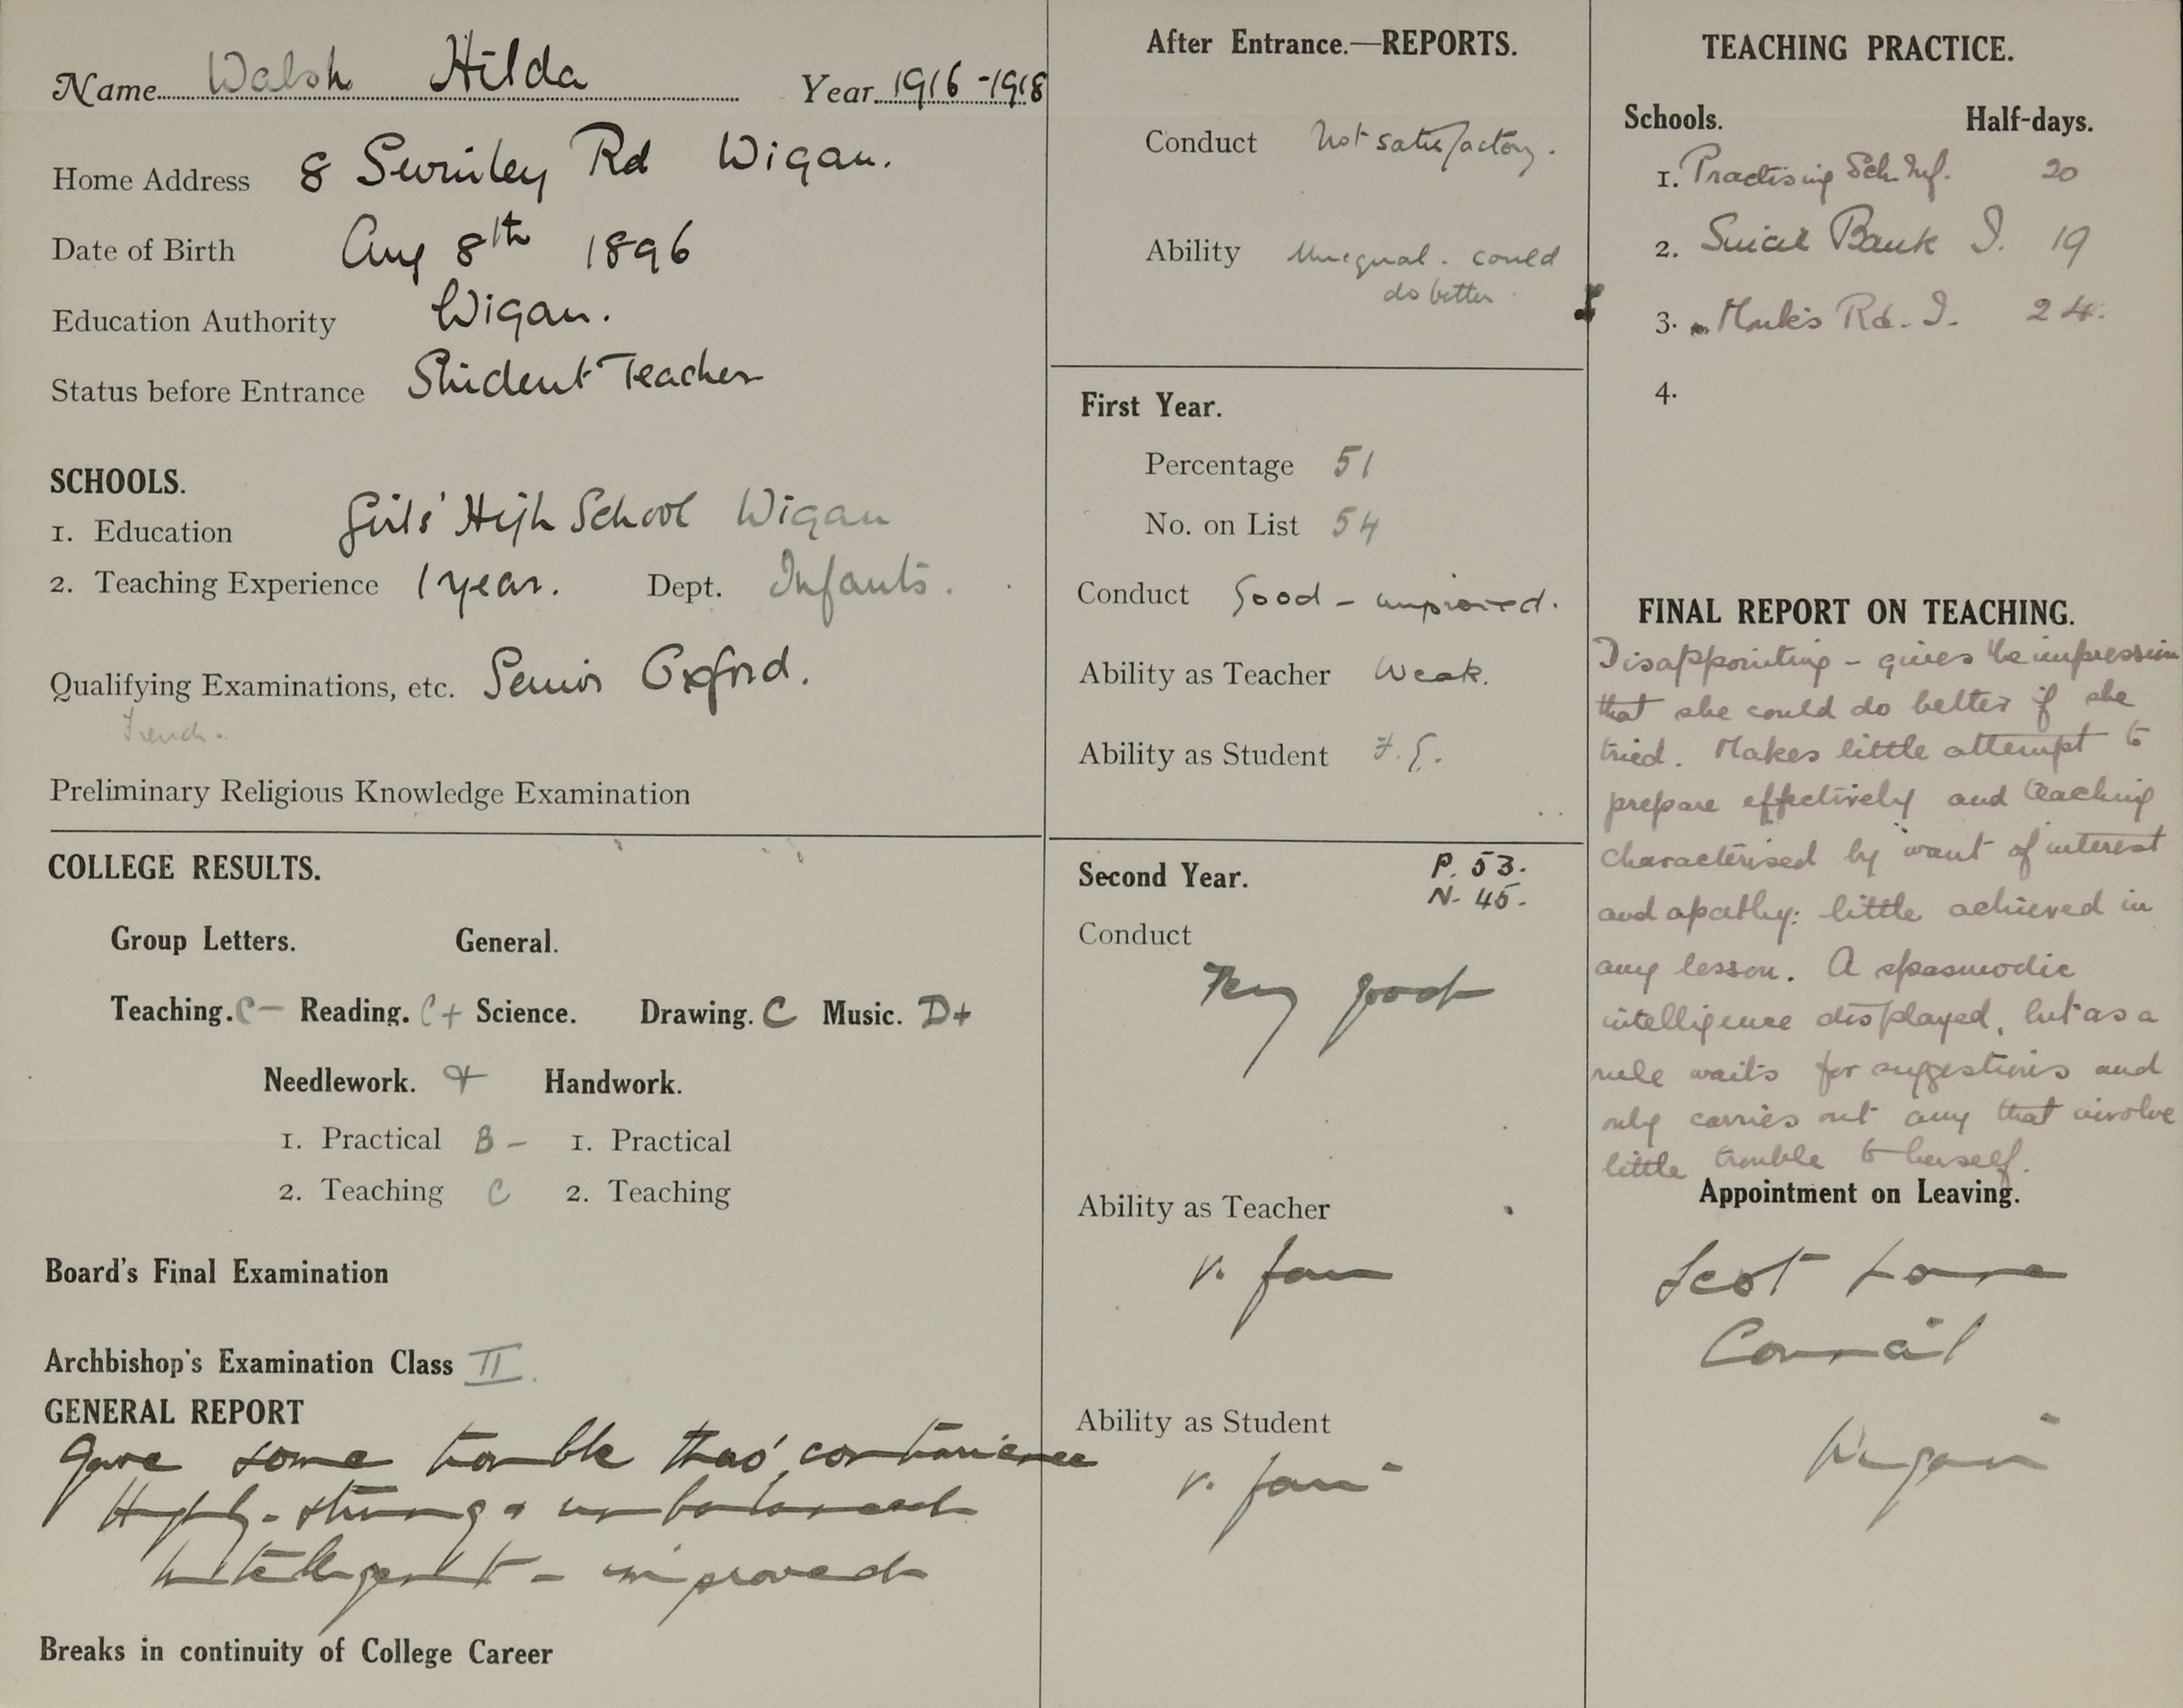 Name Walsh Hilda Year 1916-1918
Home Address 8 Swinley Rd Wigan.
Date of Birth Aug 8th 1896
Education Authority Wigan.
Status before Entrance Student Teacher
SCHOOLS.
1. Education Girls' High School Wigan
2. Teaching Experience 1 year. Dept. Infants.
Qualifying Examinations, etc. Senior Oxford.
French.
Preliminary Religious Knowledge Examination
COLLEGE RESULTS.
Group Letters. General.
Teaching. C- Reading. C+ Science. Drawing. C Music. D+
Needlework. Handwork.
1. Practical B- 1. Practical
2. Teaching C 2. Teaching
Board's Final Examination
Archbishop's Examination Class II.
GENERAL REPORT
Gave some trouble thro'
Highly-strung & unbalanced
Intelligent - improved
Breaks in continuity of College Career
After Entrance.—REPORTS.
Conduct Not satisfactory.
Ability Unequal. could
do better.
First Year.
Percentage 51
No. on List 54
Conduct Good - improved.
Ability as Teacher Weak.
Ability as Student F.G.
Second Year. P. 53.
N. 45.
Conduct
Very good
Ability as Teacher
v. fair
Ability as Student
v. fair
TEACHING PRACTICE.
Schools. Half-days.
1. Practising Sch. Inf. 20
2. Bank I. 19
3. Monks Rd. I. 24.
4.
FINAL REPORT ON TEACHING.
Disappointing - gives the impression
that she could do better if she
tried. Makes little attempt to
prepare effectively and teaching
characterised by want of interest
and apathy: little achieved in
any lesson. A spasmodic
intelligence displayed, but as a
rule waits for suggestions and
only carries out any that involve
little trouble to herself.
Appointment on Leaving.
Scot Lane
Council
Wigan